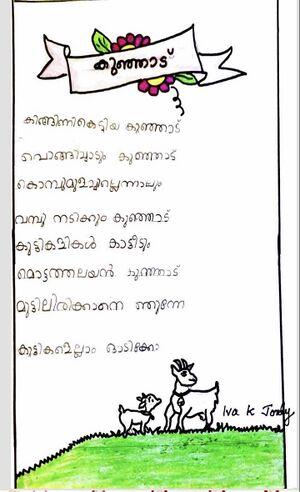 കുഞ്ഞാട്
കിങ്ങിണികെട്ടിയ കുഞ്ഞാട്
പൊങ്ങിച്ചാടും കുഞ്ഞാട്
കൊമ്പുമുളച്ചില്ലെന്നാലും
വമ്പു നടിക്കും കുഞ്ഞാട്
കുട്ടികളികൾ കാട്ടീടും
മൊട്ടത്തലയൻ കുഞ്ഞാട്
മുട്ടിലിരിക്കാനെ
കുട്ടികളെല്ലാം ഓടിക്കോ
Iva K